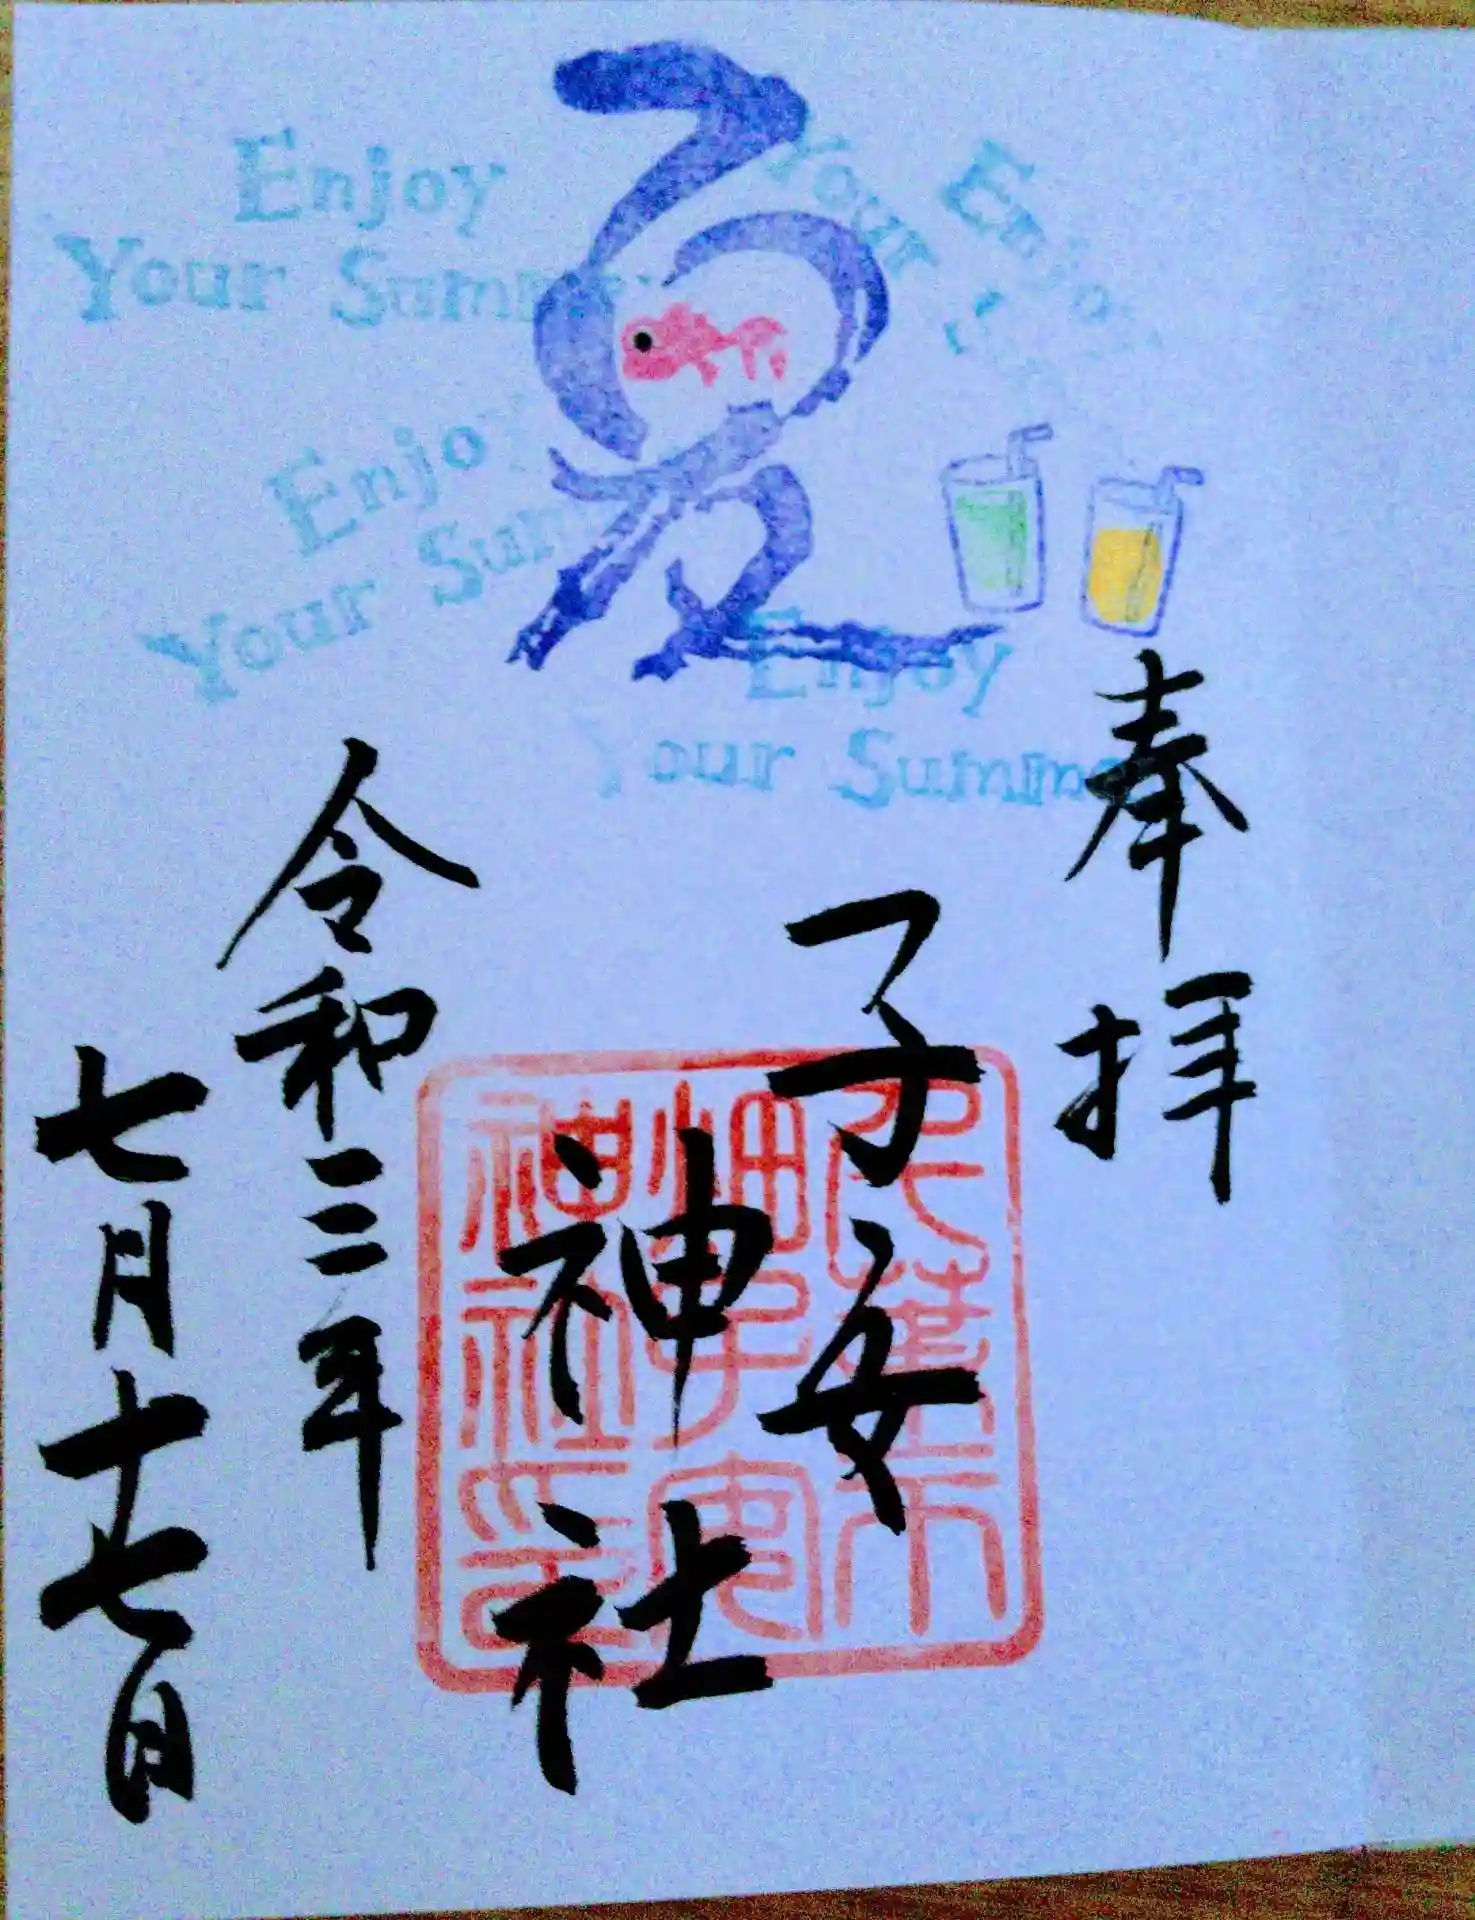 夏
Enjoy
Your Summer
Enjoy
Your
Enjoy
Your Sum
Enjoy
Your Summe
奉拝
子安
神社
令和三年
七月十七日
千葉市
畑子安
神社印